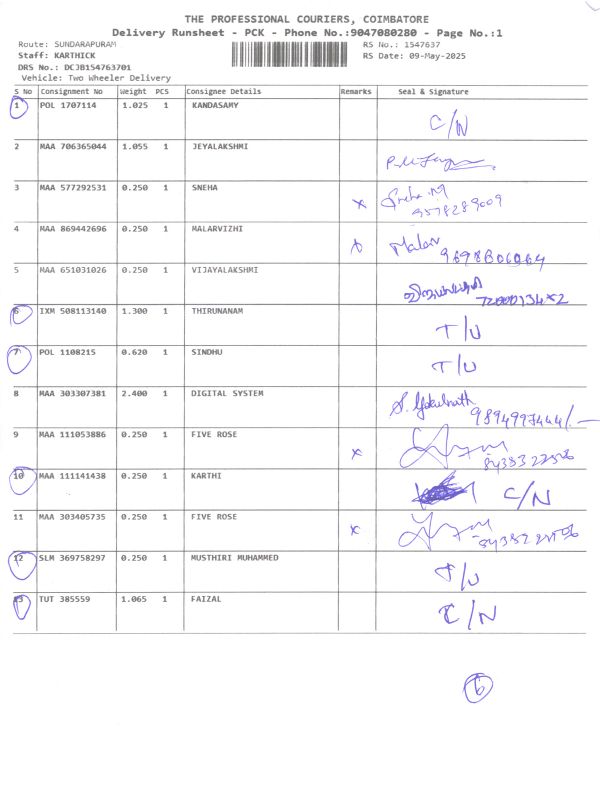 THE PROFESSIONAL COURIERS, COIMBATORE
Delivery Runsheet - PCK - Phone No.:9047080280 - Page No.:1
Route: SUNDARAPURAM RS No.: 1547637
Staff: KARTHICK RS Date: 09-May-2025
DRS No.: DCJB154763701
Vehicle: Two Wheeler Delivery
S No Consignment No Weight PCS Consignee Details Remarks Seal & Signature
1 POL 1707114 1.025 1 KANDASAMY C/N
2 MAA 706365044 1.055 1 JEYALAKSHMI
3 MAA 577292531 0.250 1 SNEHA x Sneha.M
9578289009
4 MAA 869442696 0.250 1 MALARVIZHI x Malar
9698606064
5 MAA 651031026 0.250 1 VIJAYALAKSHMI
6 IXM 508113140 1.300 1 THIRUNANAM T/U
7 POL 1108215 0.620 1 SINDHU T/U
8 MAA 303307381 2.400 1 DIGITAL SYSTEM S. Gokulnath
9894997444/-
9 MAA 111053886 0.250 1 FIVE ROSE x
10 MAA 111141438 0.250 1 KARTHI C/N
11 MAA 303405735 0.250 1 FIVE ROSE x
12 SLM 369758297 0.250 1 MUSTHIRI MUHAMMED T/U
13 TUT 385559 1.065 1 FAIZAL C/N
6